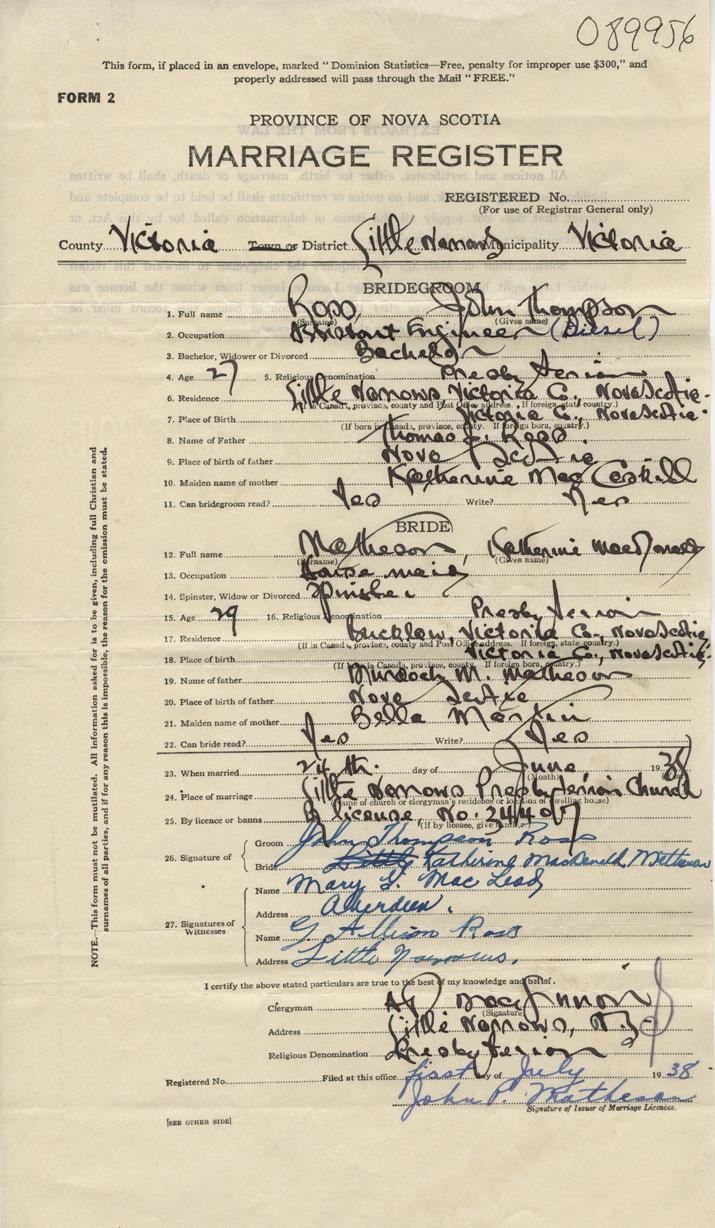 089956
This form, if placed in an envelope, marked "Dominion Statistics—Free, penalty for improper use $300," and
properly addressed will pass through the Mail "FREE."
FORM 2
PROVINCE OF NOVA SCOTIA
MARRIAGE REGISTER
REGISTERED No.
(For use of Registrar General only)
County Victoria Town or District Little Narrows Municipality Victoria
BRIDEGROOM
1. Full name Ross John Thompson
(Surname) (Given name)
2. Occupation Assistant Engineer (Diesel)
3. Bachelor, Widower or Divorced Bachelor
4. Age 27 5. Religious Denomination Presbyterian
6. Residence Little Narrows, Victoria Co., Nova Scotia.
(If in Canada, province, county and Post Office address. If foreign, state country.)
7. Place of Birth Victoria Co., Nova Scotia.
(If born in Canada, province, county. If foreign born, country.)
8. Name of Father Thomas Ross
9. Place of birth of father Nova Scotia
10. Maiden name of mother Katherine MacCaskill
11. Can bridegroom read? Yes Write? Yes
BRIDE
12. Full name Matheson, Katherine MacDonald
(Surname) (Given name)
13. Occupation House maid
14. Spinster, Widow or Divorced Spinster
15. Age 29 16. Religious Denomination Presbyterian
17. Residence Bucklaw, Victoria Co., Nova Scotia.
(If in Canada, province, county and Post Office address. If foreign, state country.)
18. Place of birth Victoria Co., Nova Scotia.
(If in Canada, province, county. If foreign born, country.)
19. Name of father Murdoch M. Matheson
20. Place of birth of father Nova Scotia
21. Maiden name of mother Bella Martin
22. Can bride read? Yes Write? Yes
23. When married 24th. day of June, 1938
(Month)
24. Place of marriage Little Narrows Presbyterian Church
(Name of church or clergyman's residence or location of dwelling house)
25. By licence or banns By license, No. 24407
(If by licence, give number)
26. Signature of Groom John Thompson Ross
Bride Katherine MacDonald Matheson
27. Signatures of Witnesses
Name Mary MacLeod
Address Aberdeen.
Name G Allison Ross
Address Little Narrows.
I certify the above stated particulars are true to the best of my knowledge and belief.
Clergyman MacKinnon
(Signature)
Address Little Narrows, N.S.
Religious Denomination Presbyterian
Registered No. Filed at this office first day of July 1938
John P. Matheson
Signature of Issuer of Marriage Licences.
[SEE OTHER SIDE]
NOTE.—This form must not be mutilated. All information asked for is to be given, including full Christian and
surnames of all parties, and if for any reason this is impossible, the reason for the omission must be stated.